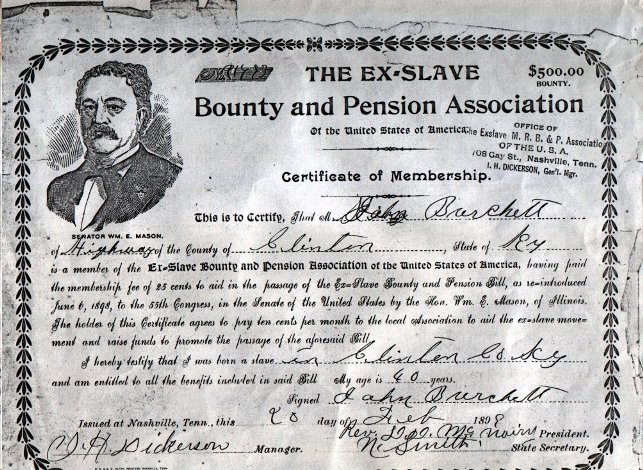 THE EX-SLAVE
$500.00
BOUNTY.
Bounty and Pension Association
Of the United States of America.
OFFICE OF
The Exslave M. R. B. & P. Association
OF THE U. S. A.
708 Gay St., Nashville, Tenn.
I. H. DICKERSON, Gen'l. Mgr.
Certificate of Membership.
SENATOR WM. E. MASON.
This is to Certify, That M John Burchett
of Highway of the County of Clinton, State of Ky
is a member of the Ex-Slave Bounty and Pension Association of the United States of America, having paid
the membership fee of 25 cents to aid in the passage of the Ex-Slave Bounty and Pension Bill, as re-introduced
June 6, 1898, to the 55th Congress, in the Senate of the United States by the Hon. Wm. E. Mason, of Illinois.
The holder of this Certificate agrees to pay ten cents per month to the local Association to aid the ex-slave move-
ment and raise funds to promote the passage of the aforesaid Bill.
I hereby testify that I was born a slave in Clinton Co Ky
and am entitled to all the benefits included in said Bill My age is 40 years.
Signed John Burchett
Issued at Nashville, Tenn., this 20 day of Feb 1898
I. H. Dickerson Manager. Rev. McNairy President.
N. Smith State Secretary.